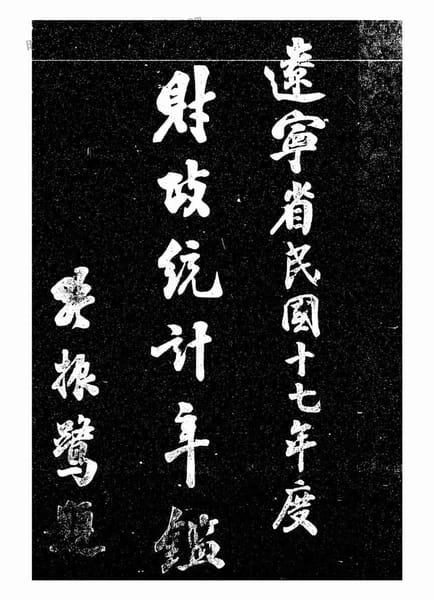 遼寧省民國十七年度
財政統計年鑑
吳振鷺題